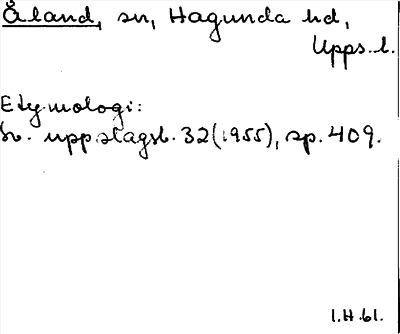 Åland, sn, Hagunda hd,
Upps. l.
Etymologi:
Sv. uppslagsb. 32 (1955), sp. 409.
1.H.61.